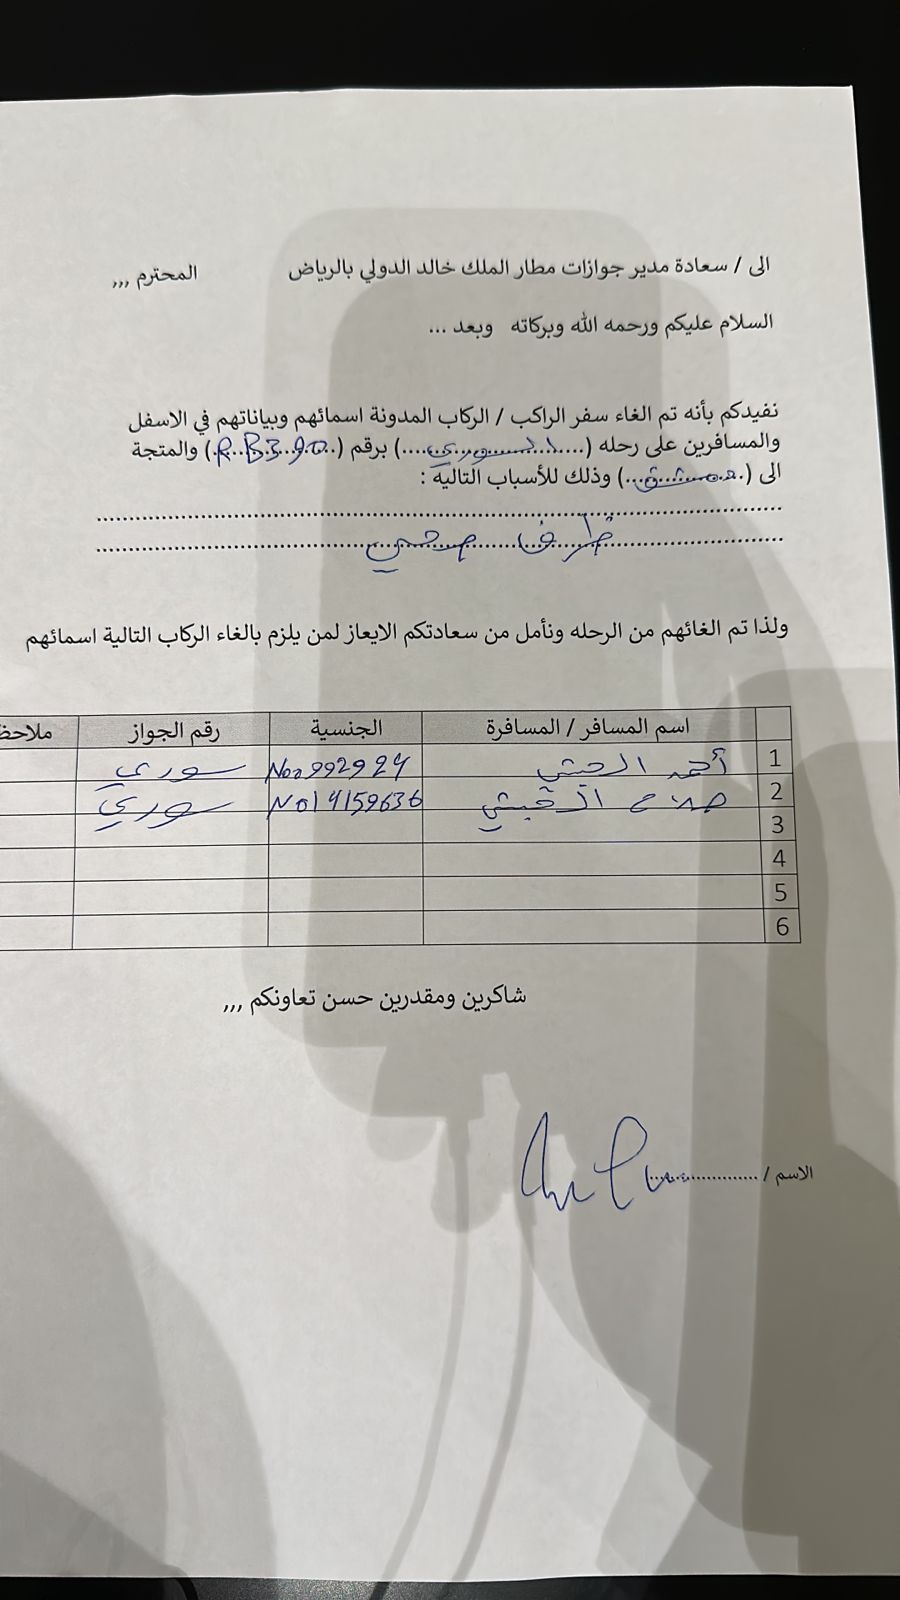 الى / سعادة مدير جوازات مطار الملك خالد الدولي بالرياض المحترم ,,,
السلام عليكم ورحمه الله وبركاته وبعد ...
نفيدكم بأنه تم الغاء سفر الراكب / الركاب المدونة اسمائهم وبياناتهم في الاسفل
والمسافرين على رحله (السورية) برقم (RB390) والمتجة
الى (دمشق) وذلك للأسباب التالية :
ظرف صحي
ولذا تم الغائهم من الرحله ونأمل من سعادتكم الايعاز لمن يلزم بالغاء الركاب التالية اسمائهم
اسم المسافر / المسافرة الجنسية رقم الجواز ملاحظ
1 أحمد سوري
2 صلاح N014159636 سوري
3
4
5
6
شاكرين ومقدرين حسن تعاونكم ,,,
الاسم /